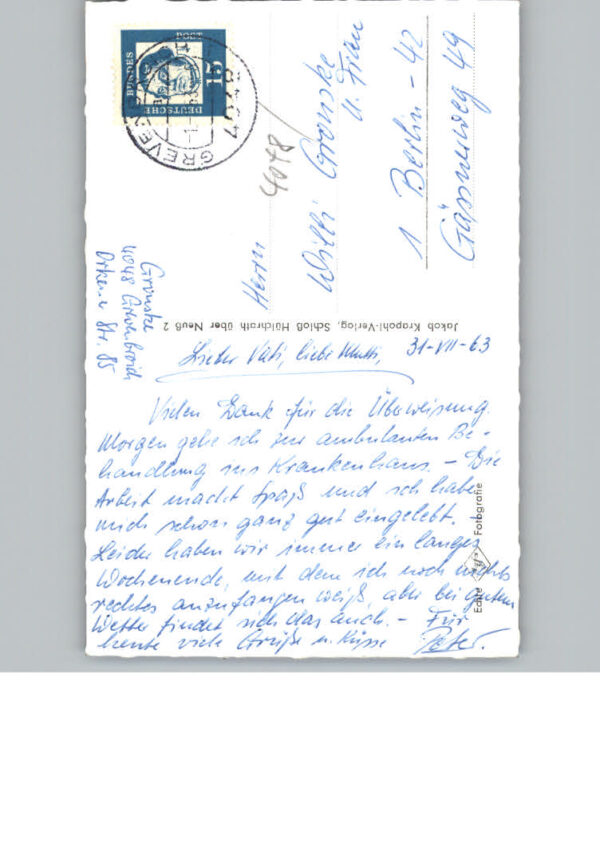 DEUTSCHE
BUNDES
POST
15
GREVENBROICH
4048
4048
Herrn
Willi Gronske
u. Frau
1 Berlin - 42
Gässnerweg 49
Gronske
4048 Grevenbroich
Orkener Str. 85
Jakob Krapohl-Verlag, Schloß Hülchrath über Neuß 2
Echte Fotografie
Lieber Vati, liebe Mutti, 31-VII-63
Vielen Dank für die Überweisung.
Morgen gehe ich zur ambulanten Be-
handlung ins Krankenhaus. - Die
Arbeit macht Spaß und ich habe
mich schon ganz gut eingelebt. -
Leider haben wir immer ein langes
Wochenende, mit dem ich noch nichts
rechtes anzufangen weiß, aber bei gutem
Wetter findet sich das auch. - Für
heute viele Grüße u. Küsse Peter.